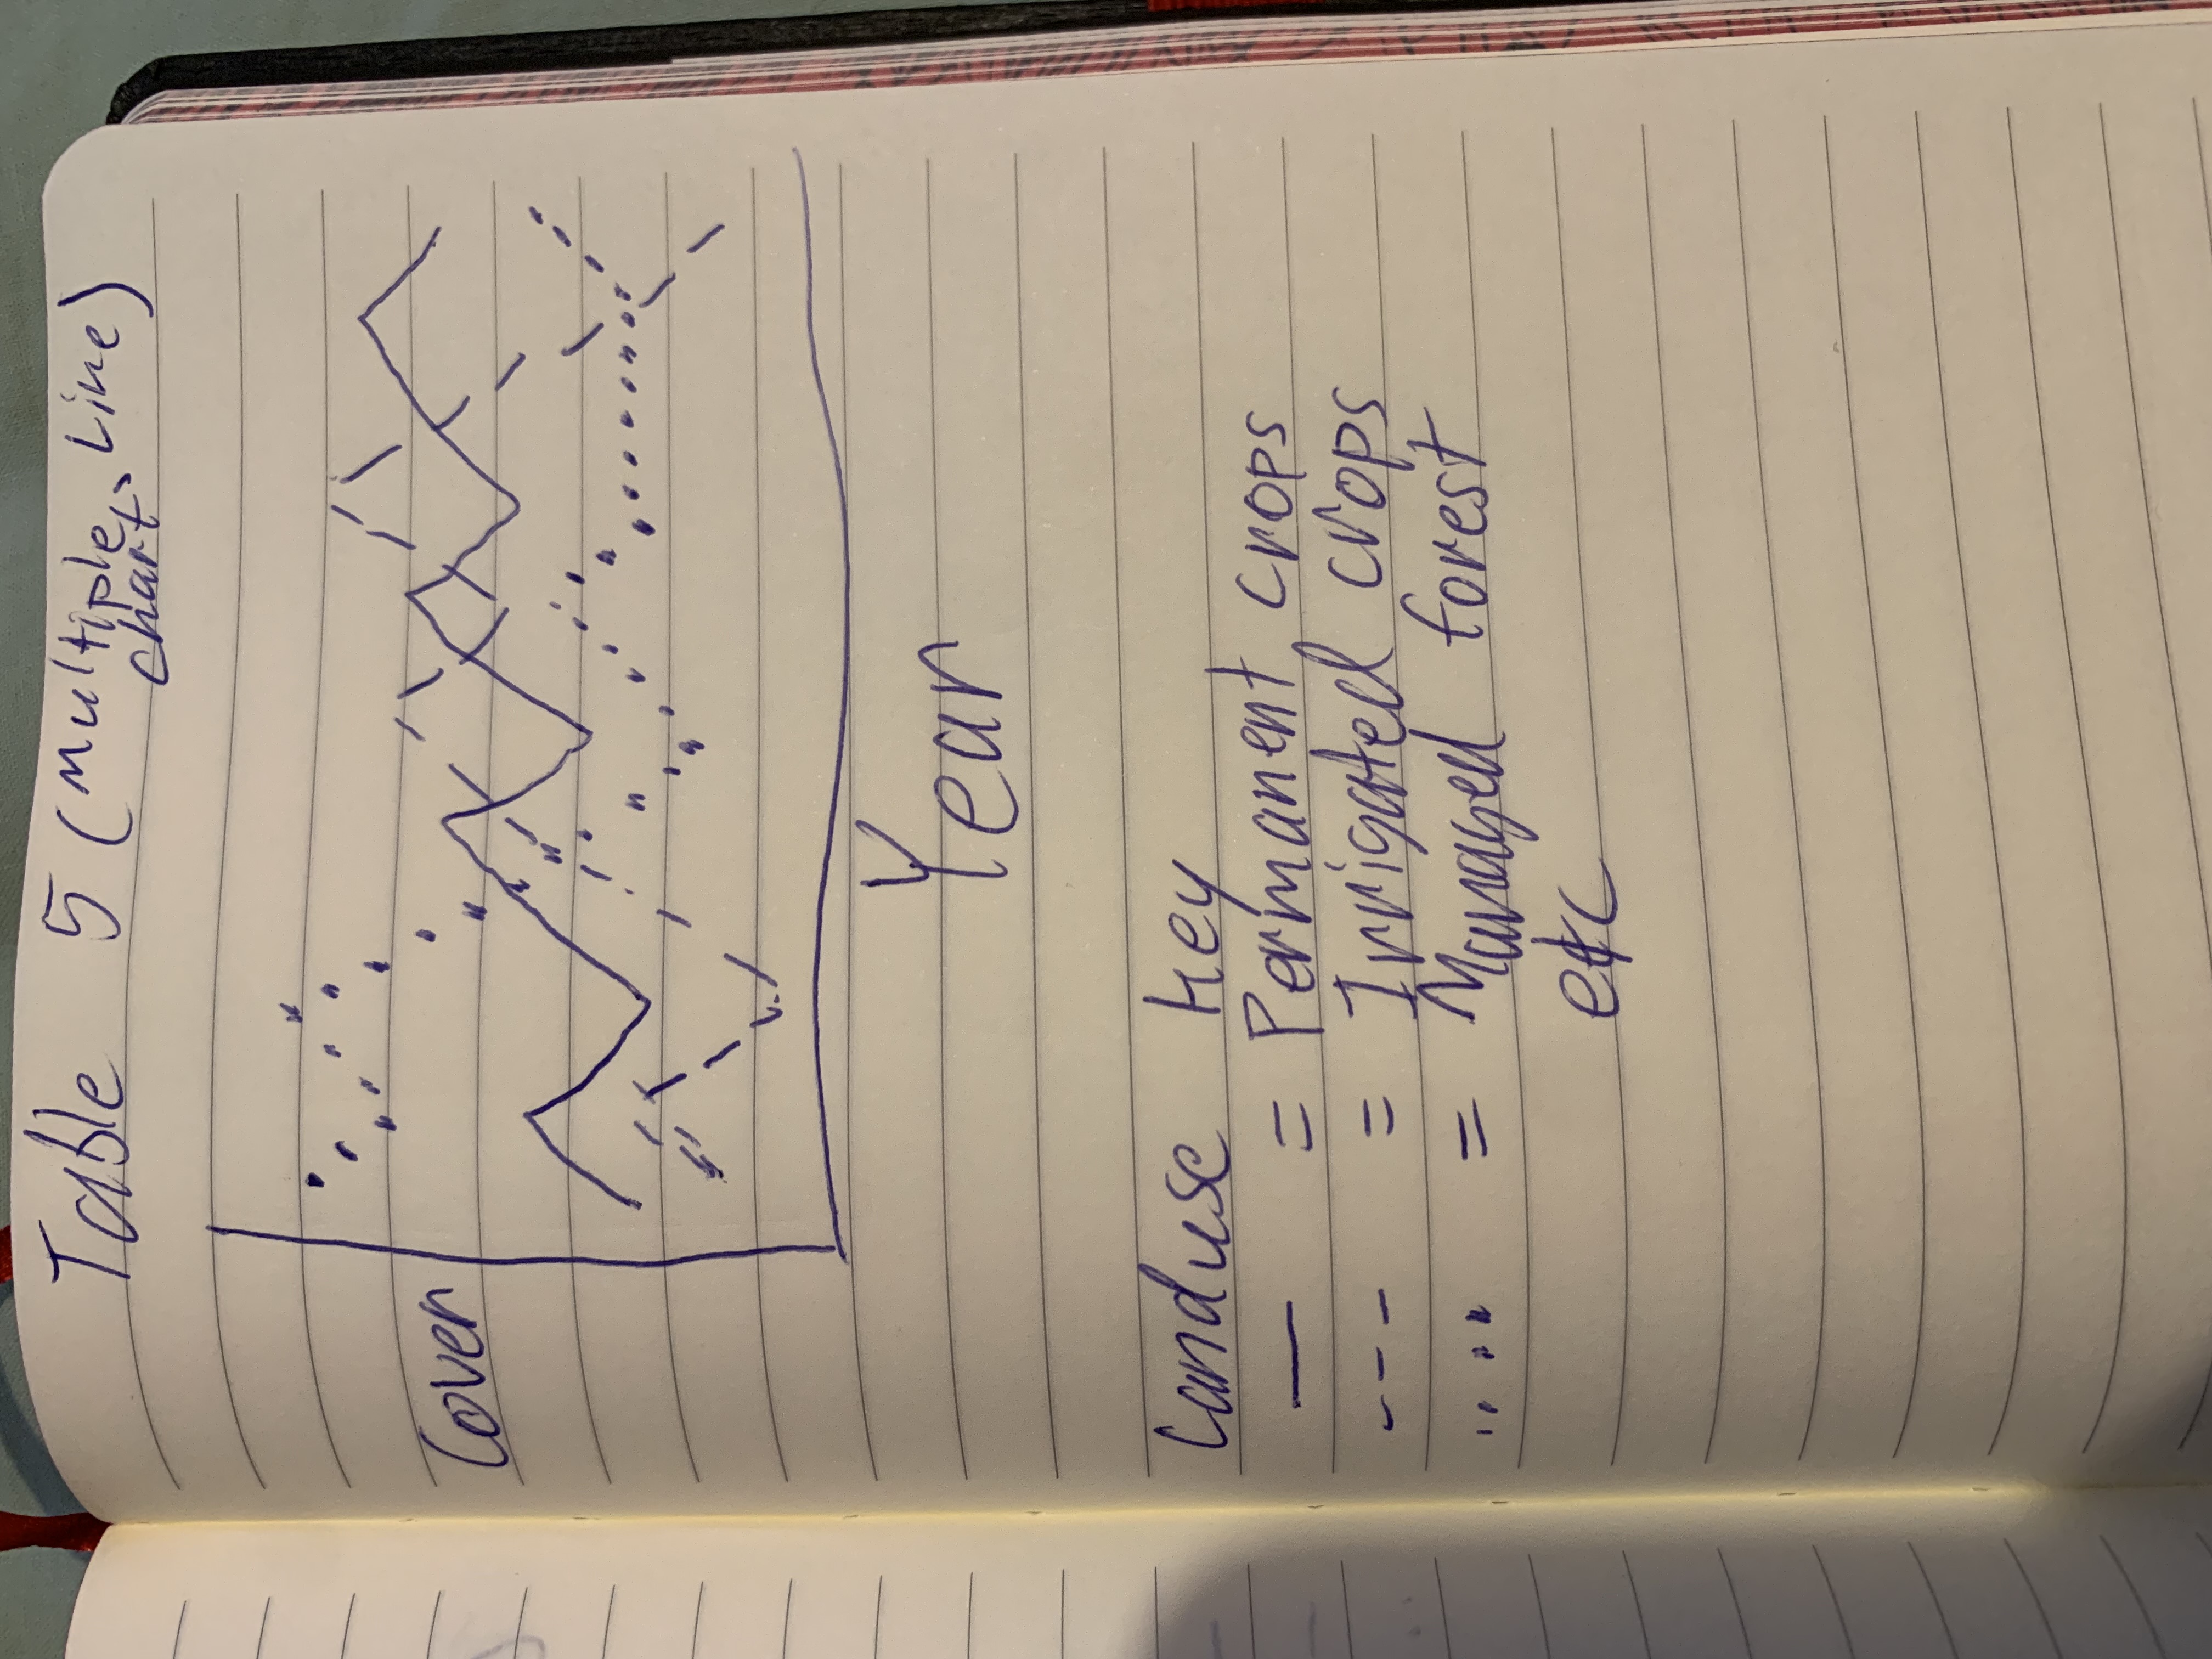 Table 5 (Multiple Line)
chart
Cover
Year
Landuse key
— = Permanent crops
--- = Irrigated crops
.... = Managed forest
etc